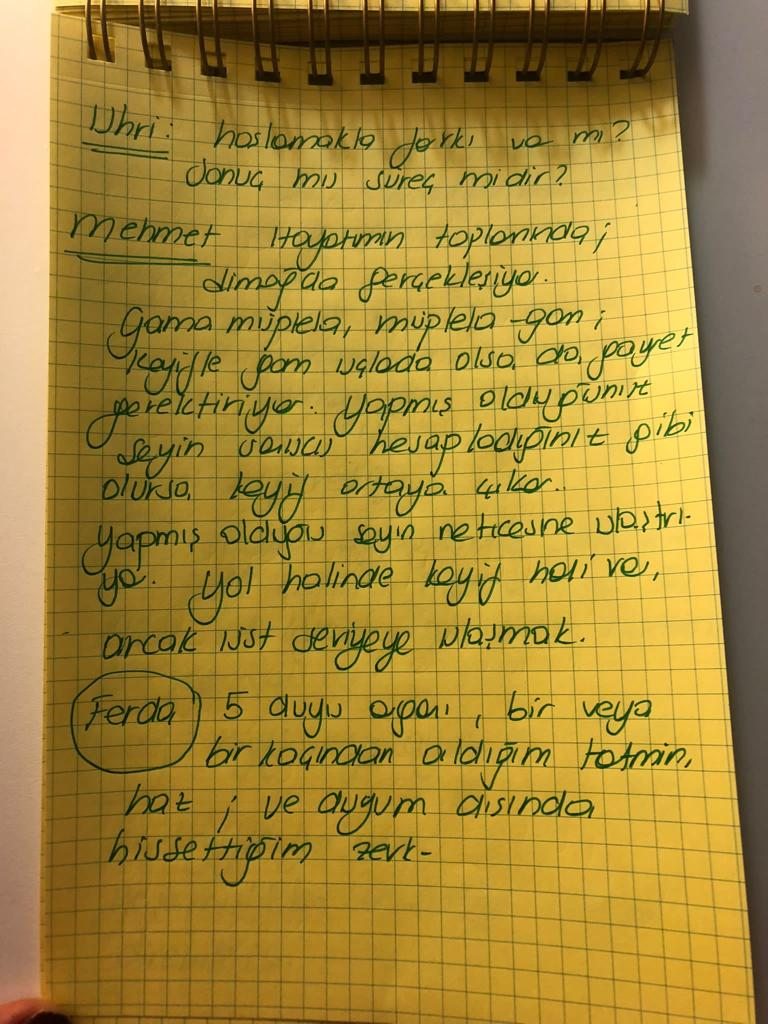 Uhri: hoslamakla farkı va mı?
Sonuç mu süreç midir?
Mehmet Hayatımın toplamında;
dimağda gerçekleşiyo.
Gama müptela, müptela-gam;
keyifle gam uçlada olsa da, gayet
gerektiriyor. Yapmış olduğunuz
şeyin hesapladığınız gibi
olursa, keyif ortaya çıkar.
Yapmış olduğu şeyin neticesne ulaştrı-
yo. Yol halinde keyif hali va,
ancak üst seviyeye ulaşmak.
Ferda 5 duyu, bir veya
bir kaçından aldığım tatmin,
haz; ve duygum dısında
hissettiğim zevk-